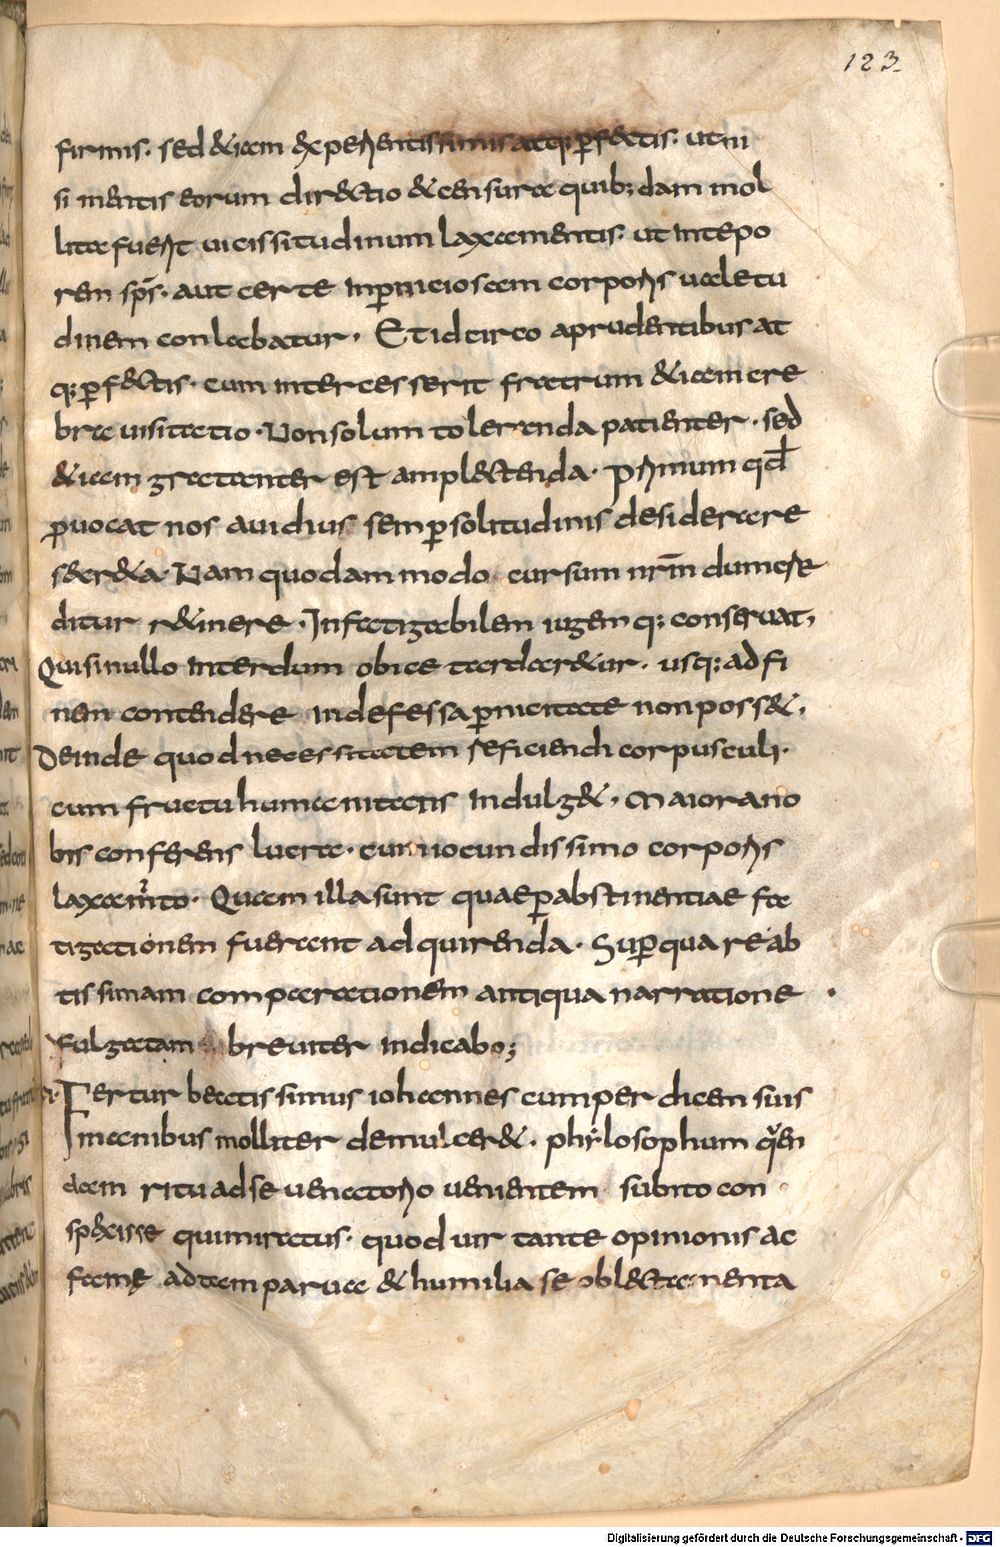 123
firmis. sed &iam experientissimis atq; ꝑf&tis. ut ni
si mentis eorum dir&tio &censura quib;dam mol
litae fuerit uicissitudinum laxamentis. ut intepo
rem sp̄s. aut certe inꝑniciosam corporis ualetu
dinem conlabatur. Et idcirco aprudentibus at
q;ꝑf&tis. cum intercesserit fratrum &iam cre
bra uisitatio. Non solum toleranda patienter. sed
&iam gratanter est ampl&tenda. primum qđ
ꝓuocat nos auidius semꝑ solitudinis desiderare
s&r&a. Nam quodammodo cursum nr̄m dum cre
ditur r&inere. Infatigabilem iugemq; conseruat,
Qui si nullo interdum obice tardar&ur. usq; ad fi
nem contendere indefessa ꝑnicitate non poss&.
Deinde quod necessitatem reficiendi corpusculi.
cum fructu humanitatis indulg&, maiora no
bis conferens lucra. cum iocundissimo corporis
laxam̄to. Quam illa sunt quae ꝑ abstinentiae fa
tigationem fuerant adquirenda. Super qua re ab
tissimam comparationem antiqua narratione
fulgatam breuiter indicabo;
Fertur beatissimus iohannes cum perdicem suis
manibus molliter demulcer&. phylosophum quen
dam ritu ad se uenatorio uenientem subito con
sp&xisse qui miratus. quod uir tante opinionis ac
famę ad tam parua & humilia se obl&tamenta
Digitalisierung gefördert durch die Deutsche Forschungsgemeinschaft - DFG